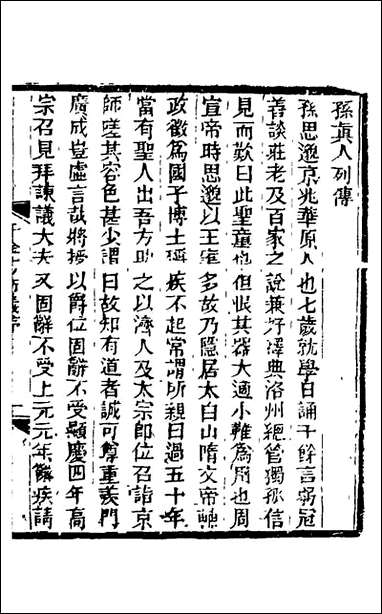 孫眞人列傳
孫思邈京兆華原人也七歲就學日誦千餘言弱冠
善談莊老及百家之說兼好釋典洛州總管獨孤信
見而歎曰此聖童也但恨其器大適小難爲用也周
宣帝時思邈以王室多故乃隱居太白山隋文帝輔
政徵爲國子博士稱疾不起常謂所親曰過五十年
當有聖人出吾方助之以濟人及太宗即位召詣京
師嗟其容色甚少謂曰故知有道者誠可尊重羨門
廣成豈虛言哉將授以爵位固辭不受顯慶四年高
宗召見拜諫議大夫又固辭不受上元元年辭疾請